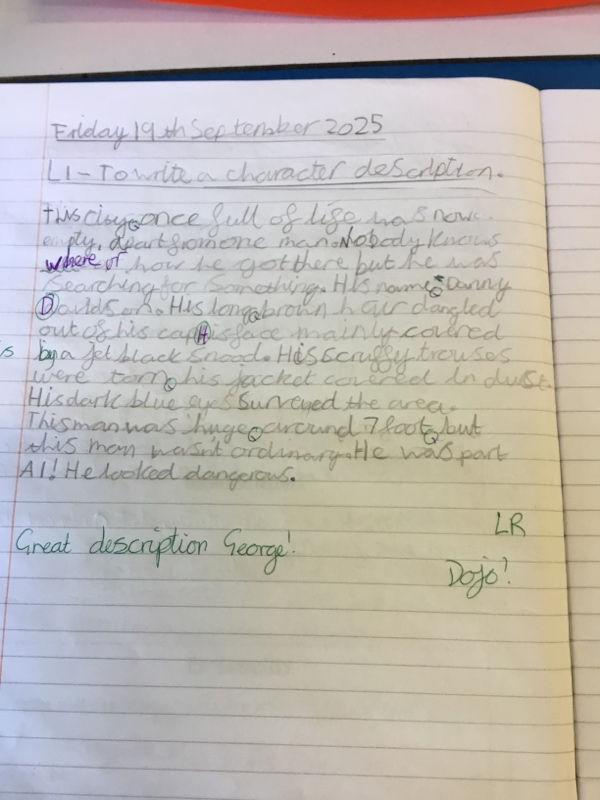 Friday 19th September 2025
LI - To write a character description.
This city, once full of life was now
empty, apart from one man. Nobody knows
where or how he got there but he was
searching for something. His name: Danny
Davidson. His long, brown hair dangled
out of his cap. His face mainly covered
by a jet black snood. His scruffy trouses
were torn, his jacket covered in dust.
His dark blue eyes surveyed the area.
This man was huge, around 7 foot, but
this man wasn't ordinary. He was part
AI! He looked dangerous.
LR
Great description George!
Dojo!